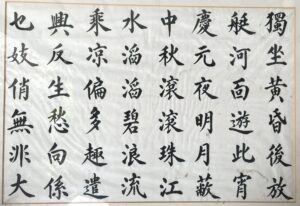 獨坐黃昏後放
艇河面遊此宵
慶元夜明月蔽
中秋滾滾珠江
水滔滔碧浪流
乘凉偏多趣遣
興反生愁向係
乜妓俏無非大